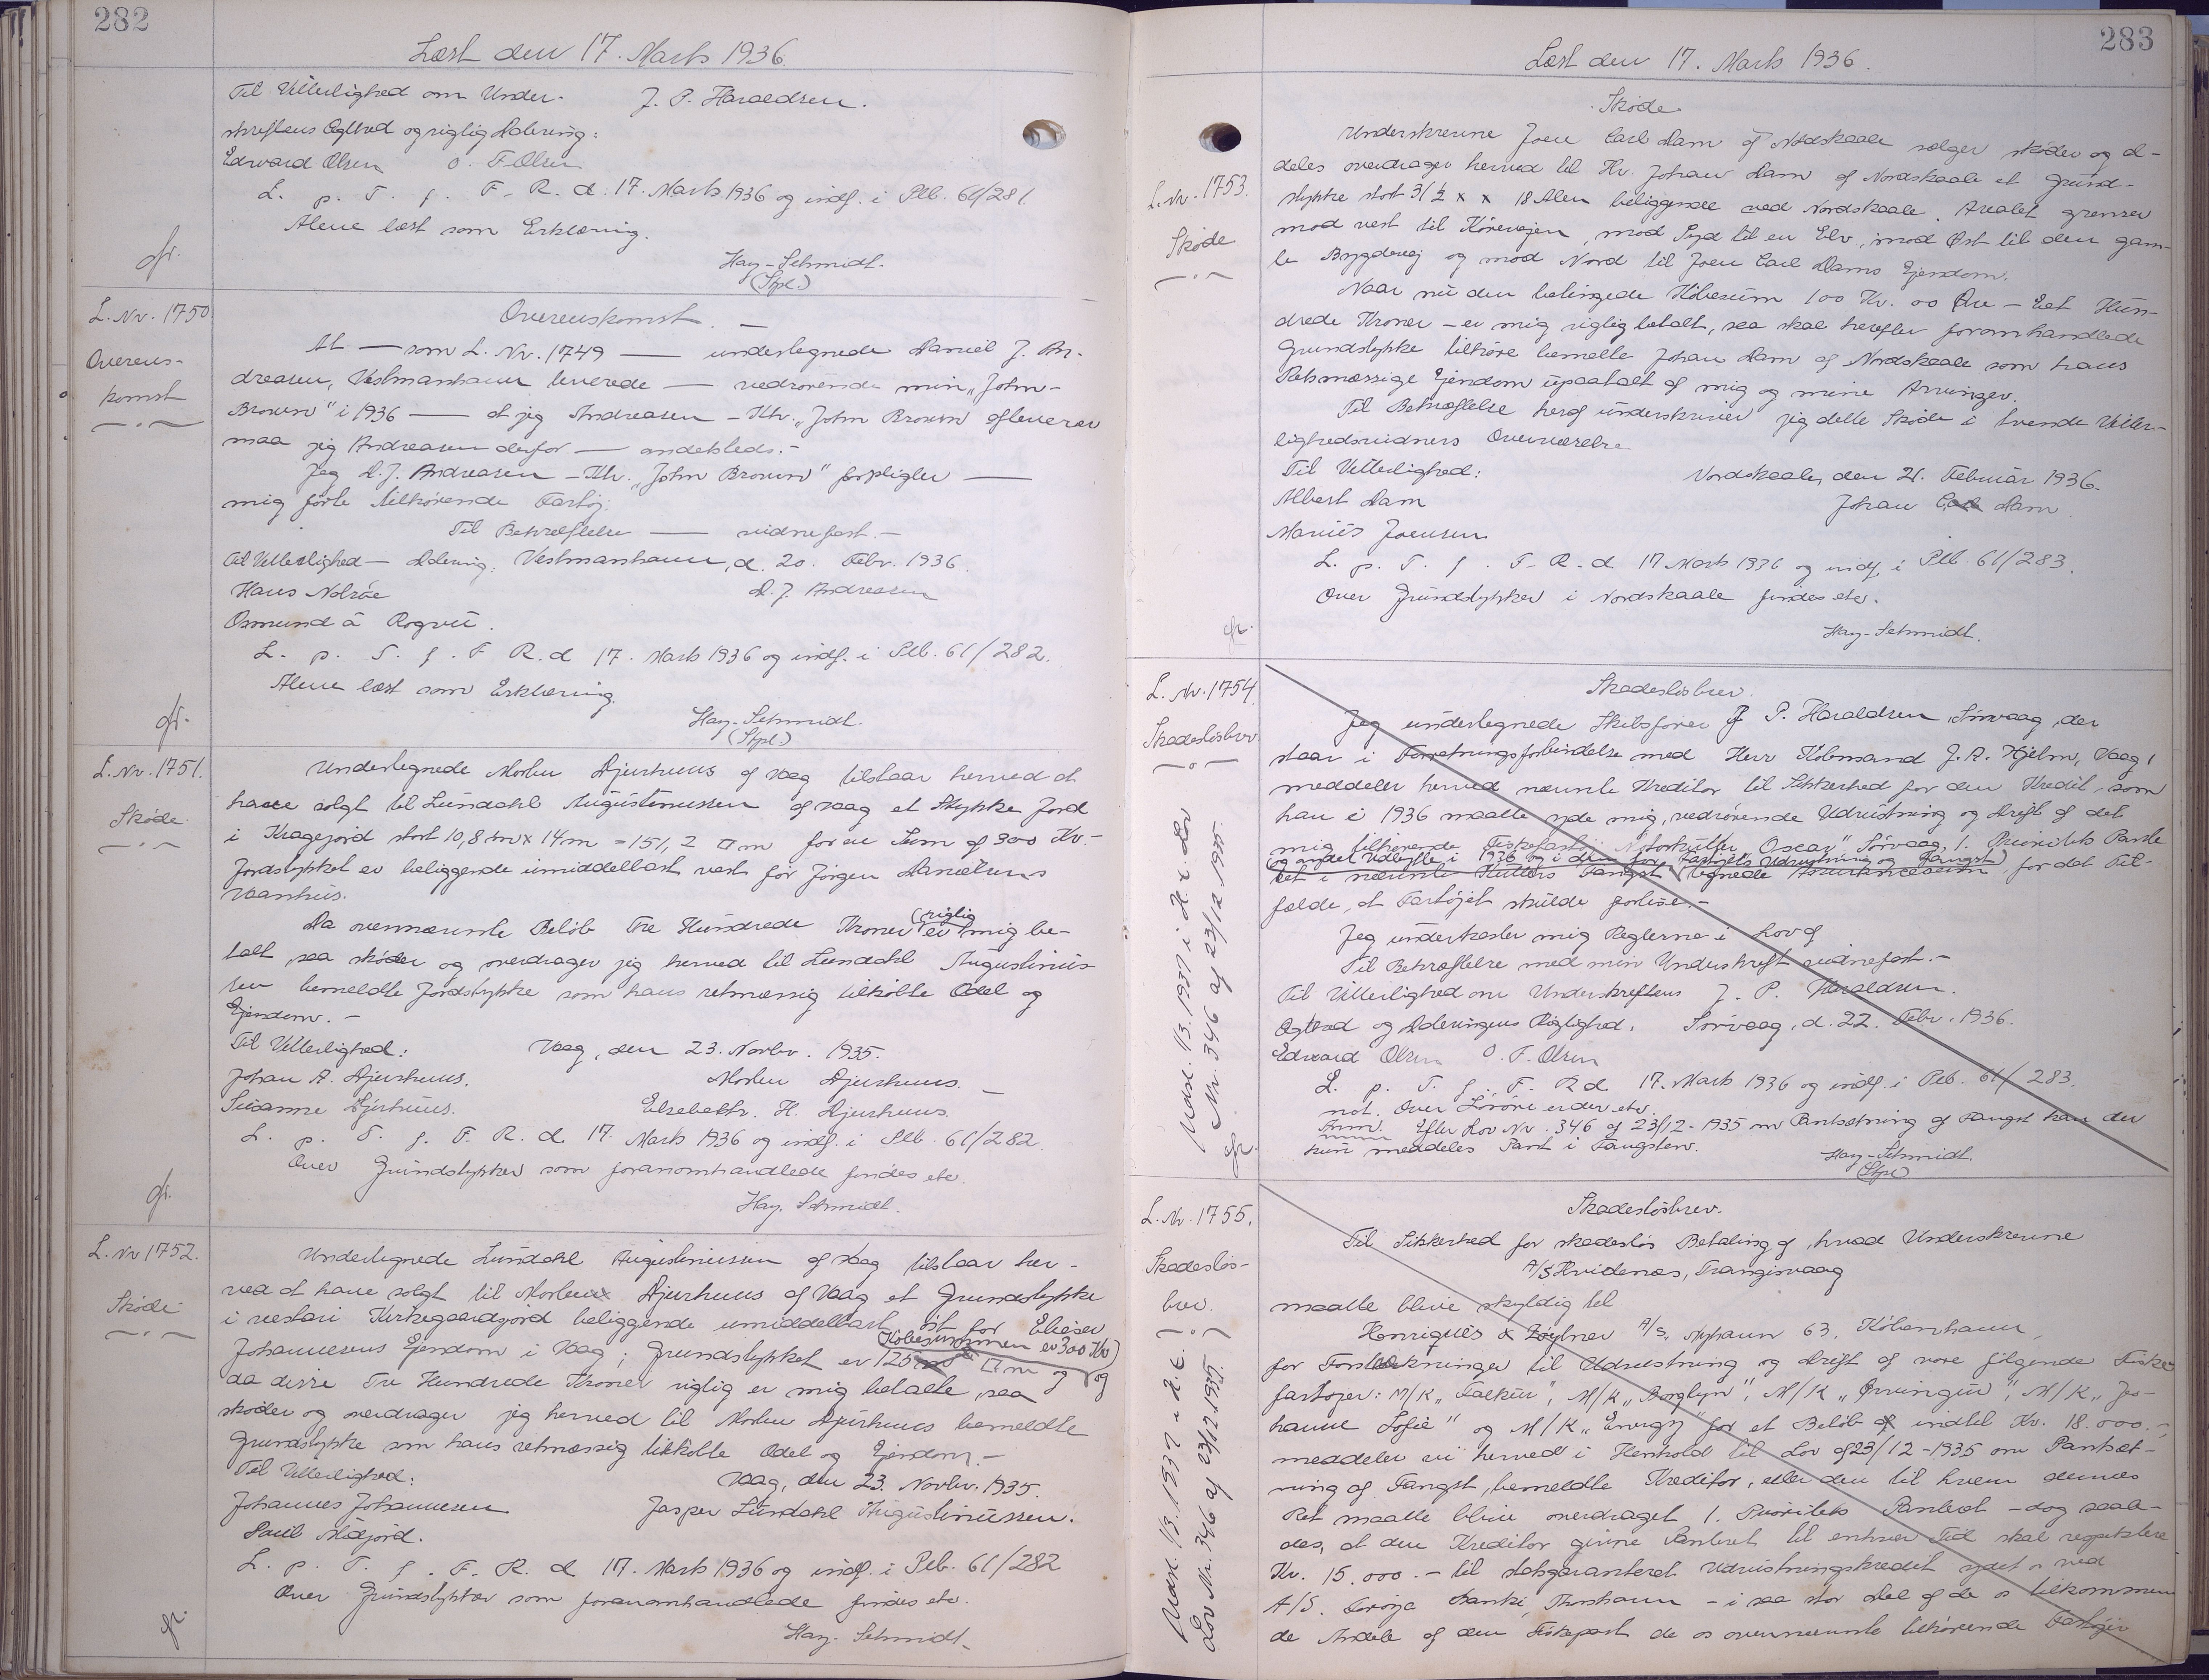 282
Læst den 17. Marts 1936.
Til Vitterlighed om Under- J. P. Haraldsen.
skriftens Ægthed og rigtig Datering:
Edward Olsen O. F. Olsen
L. p. T. f. F. R. d. 17. Marts 1936 og indf. i Ptb. 61/281
Alene læst som Erklæring.
Hay-Schmidt.
(Stpl.)
L. Nr. 1750.
Overens-
komst
Overenskomst. —
At — som L. Nr. 1749 — undertegnede Daniel J. An-
dreasen, Vestmanhavn leverede — vedrørende min „John-
Brown" i 1936 — at jeg Andreasen - Ktr. „John Brown afleverer
maa jeg Andreasen derfor — andetsteds.-
Jeg D. J. Andreasen - Ktr. „John Brown" forpligter —
mig førte tilhørende Fartøj.
Til Bekræftelse — vidnefast.-
Til Vitterlighed — Datering: Vestmanhavn, d. 20. Febr. 1936.
Hans Nolsøe D. J. Andreasen
Osmund á Rogvu.
L. p. T. f. F. R. d 17. Marts 1936 og indf. i Ptb. 61/282.
Alene læst som Erklæring.
Hay-Schmidt.
(Stpl.)
L. Nr. 1751.
Skøde.
Undertegnede Morten Djurhuus af Vaag tilstaar herved at
have solgt til Lundahl Augustinussen af Vaag et Stykke Jord
i Kragejord stort 10,8 m x 14 m = 151,2 □ m for en Sum af 300 Kr.-
Jordstykket er beliggende umiddelbart vest for Jørgen Danielsens
Vaanhus.
Da ovennævnte Beløb Tre Hundrede Kroner er (rigtig mig be-
talt, saa skøder og overdrager jeg herved til Lundahl Augustinus-
sen bemeldte Jordstykke som hans retmæssig tilkøbte Odel og
Ejendom. -
Til Vitterlighed: Vaag, den 23. Novbr. 1935.
Johan A. Djurhuus. Morten Djurhuus. —
Susanne Djurhuus. Elsebeth. H. Djurhuus.
L. p. T. f. F. R. d. 17. Marts 1936 og indf. i Ptb. 61/282.
Over Grundstykker som foranomhandlede findes etc.
Hay. Schmidt.
L. Nr 1752.
Skøde
Undertegnede Lundahl Augustinussen af Vaag tilstaar her-
ved at have solgt til Morten Djurhuus af Vaag et Grundstykke
i vestari Kirkegaardsjord beliggende umiddelbart øst for Elieser
(Købesummen er 300 Kr.)
Johannesens Ejendom i Vaag; Grundstykket er 125 □ m og og
da disse Tre Hundrede Kroner rigtig er mig betalte, saa
skøder og overdrager jeg herved til Morten Djurhuus bemeldte
Grundstykke som hans retmæssig tilkøbte Odel og Ejendom. -
Til Vitterlighed: Vaag, den 23. Novbr. 1935.
Johannes Johannesen Jasper Lundahl Augustinussen.
Poul Midjord.
L. p. T. f. F. R. d 17. Marts 1936 og indf. i Ptb. 61/282
Over Grundstykker som foranomhandlede findes etc.
Hay-Schmidt-
283
Læst den 17. Marts 1936.
L. Nr. 1753.
Skøde
Skøde.
Underskrevne Joen Carl Dam af Nordskaale sælger skøder og af-
deles overdrager herved til Hr. Johan Dam af Nordskaale et Grund-
stykke stort 31½ x x 18 Alen beliggende ved Nordskaale. Arealet grænser
mod vest til Kørevejen, mod Syd til en Elv, mod Øst til den gam-
le Bygdevej og mod Nord til Joen Carl Dams Ejendom.
Naar nu den betingede Købesum 100 Kr. 00 Øre - Eet Hun-
drede Kroner - er mig rigtig betalt, saa skal herefter foromhandlede
Grundstykke tilhøre bemeldte Johan Dam af Nordskaale som hans
Retsmæssige Ejendom upaatalt af mig og mine Arvinger.
Til Bekræftelse heraf underskriver jeg dette Skøde i tvende Vitter-
lighedsvidners Overværelse.
Til Vitterlighed: Nordskaale, den 21. Februar 1936.
Albert Dam Johan Carl Dam
Marius Joensen
L. p. T. f. F. R. d 17 Marts 1936 og indf. i Ptb. 61/283.
Over Grundstykker i Nordskaale findes etc.
Hay-Schmidt.
L. Nr. 1754.
Skadesløsbrev
Skadesløsbrev.
Jeg undertegnede Skibsfører J. P. Haraldsen, Sørvaag, der
staar i Forretningsforbindelse med Herr Købmand J. A. Hjelm, Vaag,
meddeler herved nævnte Kreditor til Sikkerhed for den Kredit, som
han i 1936 maatte yde mig, vedrørende Udrustning og Drift af det
mig tilhørende Fiskefartøj Motorkutter „Oscar" Sørvaag, 1. Prioritets Pante
(og andet Udbytte i 1936 og i den for Fartøjets Udrustning og Fangst)
ret i nævnte Kutters Fangst tegnede Assurancesum, for det Til-
fælde, at Fartøjet skulde forlise.-
Jeg underkaster mig Reglerne i Lov af
Til Bekræftelse med min Underskrift vidnefast.-
Til Vitterlighed om Underskriftens J. P. Haraldsen.
Ægthed og Dateringens Rigtighed. Sørvaag, d. 22. Febr. 1936.
Edward Olsen O. F. Olsen
L. p. T. f. F. R d 17. Marts 1936 og indf. i Ptb. 61/283.
Anm. Efter Lov Nr. 346 af 23/12-1935 om Pantsætning af Fangst kan der
kun meddeles Pant i Fangsten. Hay-Schmidt.
(Stpl)
Nr. 346 af 23/12 1935.
L. Nr. 1755.
Skadesløs-
brev.
Skadesløsbrev.
Til Sikkerhed for skadesløs Betaling af, hvad Underskrevne
A/S Hvidenæs, Trangisvaag
maatte blive skyldig til
Henriques & Zøylner A/S, Nyhavn 63, København,
for Forstrækninger til Udrustning og Drift af vore følgende Fiske
fartøjer: M/K „Falkur", M/K „Borglyn", M/K „Ørvingur", M/K „Jo-
hanne Sofie" og M/K „Energy" for et Beløb af indtil Kr. 18.000.-,
meddeler vi herved i Henhold til Lov af 23/12-1935 om Pantsæt-
ning af Fangst, bemeldte Kreditor, eller den til hvem dennes
Ret maatte blive overdraget 1. Prioritets Panteret - dog saale-
des, at den Kreditor givne Panteret til enhver Tid skal respektere
Kr. 15.000.- til statsgaranteret Udrustningskredit ydet os ved
A/S. Føroya Banki, Thorshavn - i saa stor Del af de os tilkommen
de Andele af den Fiskepart de os ovennævnte tilhørende Fartøjer
Lov Nr. 346 af 23/12.1935.